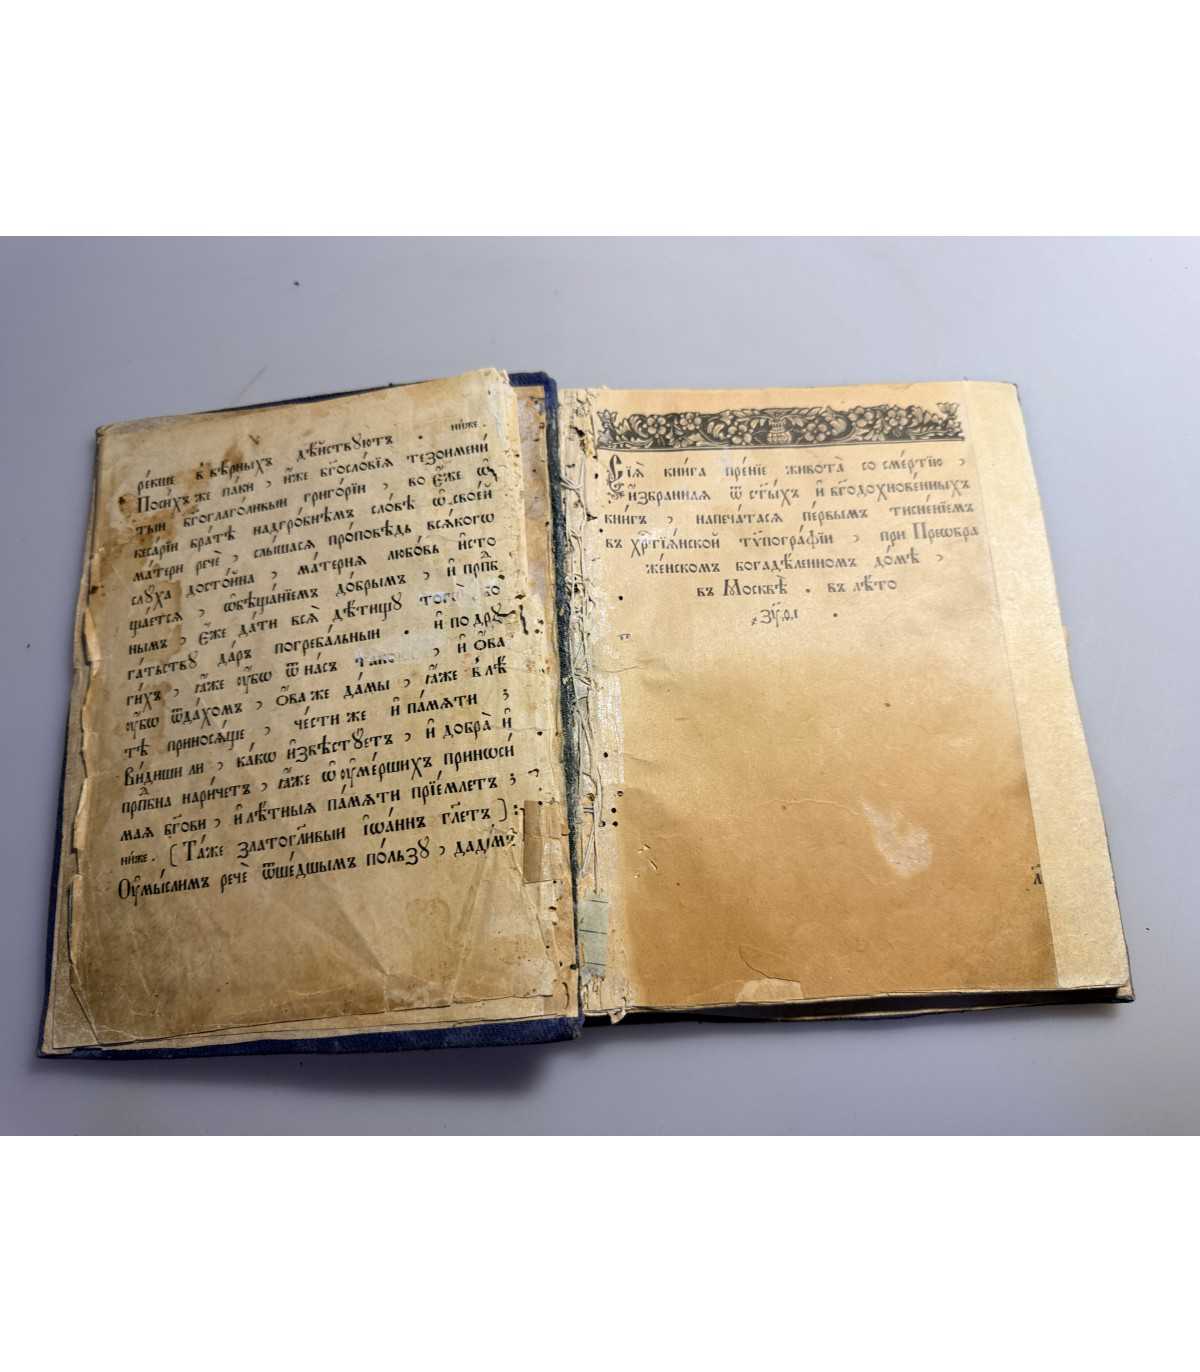 ре́кше в вѣ́рныхъ дѣ́йствꙋютъ . ни́же .
Поси́хъ же па́ки , и҆́же бг҃осло́вїѧ тезоимени́
тыи бг҃оглаго́ливыи григо́рїи , во є҆́же ѡ҆
кеса́рїи бра́тѣ надгро́бнѣмъ сло́вѣ ѡ҆ своеѝ
ма́тери речѐ , слы́шасѧ про́повѣдь всѧ́когѡ
слꙋ́ха досто́йна , ма́тернѧ любо́вь и҆сто
ща́етсѧ , ѡ҆бѣща́нїемъ до́брымъ , и҆ прпⷣб
нымъ , є҆́же да́ти всѧ̀ дѣ́тищꙋ
га́тьствꙋ да́ръ погреба́льныи . и҆ по дрꙋ
ги́хъ , ꙗ҆́же ᲂу҆́бѡ ѿ на́съ , и҆ ѻ҆́ва
ᲂу҆́бѡ ѿда́хомъ , ѻ҆́ва же да́мы , ꙗ҆́же в лѣ́
тѣ приносѧ́ще , че́сти же и҆ па́мѧти ;
Ви́диши ли , ка́кѡ и҆звѣ́ствꙋетъ , и҆ добра̀ и҆
прпⷣбна нариче́тъ , ꙗ҆́же ѡ҆ ᲂу҆ме́ршихъ приноси́
маѧ бг҃ови , и҆ лѣ́тныѧ па́мѧти прїе́млетъ ;
ни́же . ( Та́же златогл҃ивыи і҆ѡа́ннъ гл҃етъ ) :
Оу҆мы́слимъ речѐ ѿше́дшымъ по́льзꙋ , дади́мъ
Сїѧ̀ кни́га пре́нїе живота̀ со сме́ртїю ,
и҆збраннаѧ ѿ ст҃ы́хъ и҆ бг҃одохнове́нныхъ
кни́гъ , напеча́тасѧ пе́рвымъ тисне́нїемъ
въ хрⷭ҇тїѧ́нской тѷпогра́фїи , при Преѡбра
же́нскомъ богадѣ́ленномъ до́мѣ ,
въ Москвѣ̀ . въ лѣ́то